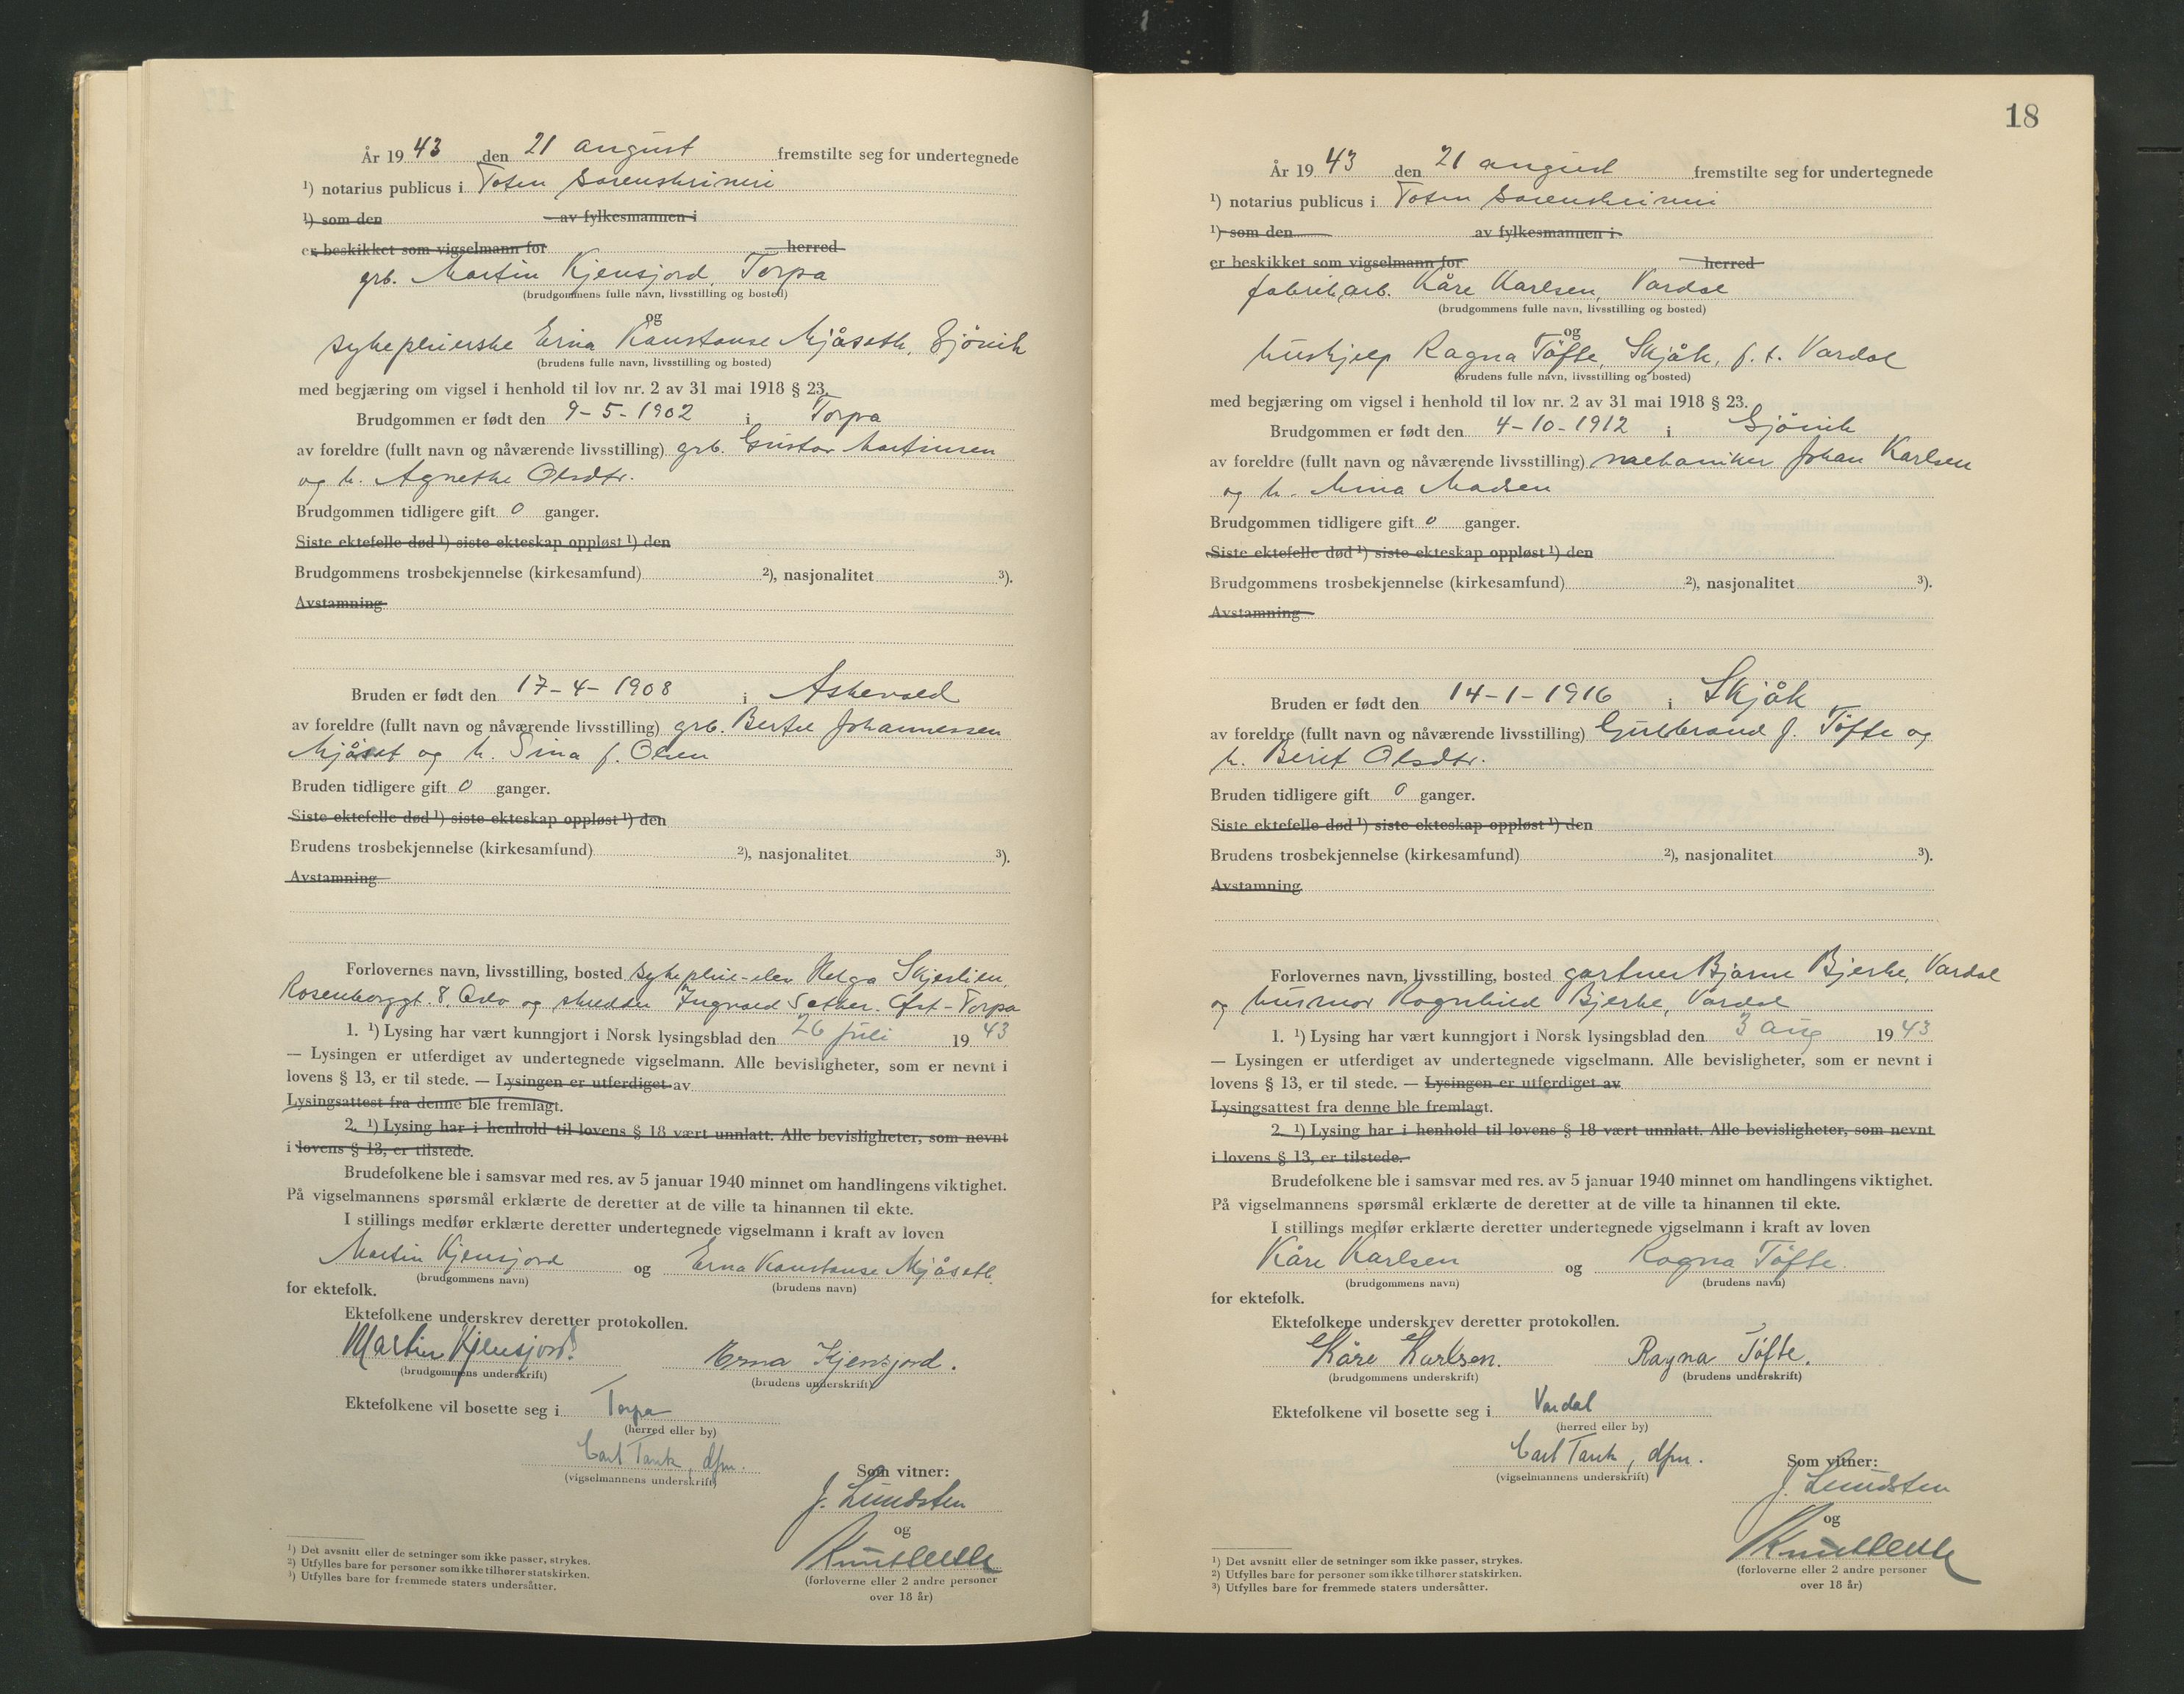 År 1943 den 21 august fremstilte seg for undertegnede
¹) notarius publicus i Toten sorenskriveri
¹) som den av fylkesmannen i
er beskikket som vigselmann for herred
grb. Martin Kjensjord, Torpa
(brudgommens fulle navn, livsstilling og bosted)
og
sykepleierske Erna Konstanse Mjåseth, Gjövik
(brudens fulle navn, livsstilling og bosted)
med begjæring om vigsel i henhold til lov nr. 2 av 31 mai 1918 § 23.
Brudgommen er født den 9-5-1902 i Torpa
av foreldre (fullt navn og nåværende livsstilling) grb. Gustav Martinsen
og h. Agnethe Olsdtr.
Brudgommen tidligere gift 0 ganger.
Siste ektefelle død ¹) siste ekteskap oppløst ¹) den
Brudgommens trosbekjennelse (kirkesamfund) ²), nasjonalitet ³).
Avstamning
Bruden er født den 17-4-1908 i Askevold
av foreldre (fullt navn og nåværende livsstilling) grb. Bertel Johannessen
Mjåset og h. Sina f. Olsen
Bruden tidligere gift 0 ganger.
Siste ektefelle død ¹) siste ekteskap oppløst ¹) den
Brudens trosbekjennelse (kirkesamfund) ²), nasjonalitet ³).
Avstamning
Forlovernes navn, livsstilling, bosted sykepleie-elev Helga Skjerlien,
Rosenborggt. 8, Oslo og skredder Ingvald Sether. Øst-Torpa
1. ¹) Lysing har vært kunngjort i Norsk lysingsblad den 26 juli 1943
— Lysingen er utferdiget av undertegnede vigselmann. Alle bevisligheter, som er nevnt i
lovens § 13, er til stede. — Lysingen er utferdiget av
Lysingsattest fra denne ble fremlagt.
2. ¹) Lysing har i henhold til lovens § 18 vært unnlatt. Alle bevisligheter, som nevnt
i lovens § 13, er tilstede.
Brudefolkene ble i samsvar med res. av 5 januar 1940 minnet om handlingens viktighet.
På vigselmannens spørsmål erklærte de deretter at de ville ta hinannen til ekte.
I stillings medfør erklærte deretter undertegnede vigselmann i kraft av loven
Martin Kjensjord og Erna Konstanse Mjåseth
(brudgommens navn) (brudens navn)
for ektefolk.
Ektefolkene underskrev deretter protokollen.
Martin Kjensjord. Erna Kjensjord.
(brudgommens underskrift) (brudens underskrift)
Ektefolkene vil bosette seg i Torpa
(herred eller by)
Carl Tank, dfm.
(vigselmannens underskrift)
Som vitner:
J. Lundsten
og
(forloverne eller 2 andre personer
over 18 år)
¹) Det avsnitt eller de setninger som ikke passer, strykes.
²) Utfylles bare for personer som ikke tilhører statskirken.
³) Utfylles bare for fremmede staters undersåtter.
18
År 1943 den 21 august fremstilte seg for undertegnede
¹) notarius publicus i Toten sorenskriveri
¹) som den av fylkesmannen i
er beskikket som vigselmann for herred
fabrikarb. Kåre Karlsen, Vardal
(brudgommens fulle navn, livsstilling og bosted)
og
hushjelp Ragna Töfte, Skjåk, f. t. Vardal
(brudens fulle navn, livsstilling og bosted)
med begjæring om vigsel i henhold til lov nr. 2 av 31 mai 1918 § 23.
Brudgommen er født den 4-10-1912 i Gjövik
av foreldre (fullt navn og nåværende livsstilling) mekaniker Johan Karlsen
og h. Mina Madsen
Brudgommen tidligere gift 0 ganger.
Siste ektefelle død ¹) siste ekteskap oppløst ¹) den
Brudgommens trosbekjennelse (kirkesamfund) ²), nasjonalitet ³).
Avstamning
Bruden er født den 14-1-1916 i Skjåk
av foreldre (fullt navn og nåværende livsstilling) Gulbrand J. Töfte og
h. Berit Olsdtr.
Bruden tidligere gift 0 ganger.
Siste ektefelle død ¹) siste ekteskap oppløst ¹) den
Brudens trosbekjennelse (kirkesamfund) ²), nasjonalitet ³).
Avstamning
Forlovernes navn, livsstilling, bosted gartner Bjarne Bjerke, Vardal
og husmor Ragnhild Bjerke, Vardal
1. ¹) Lysing har vært kunngjort i Norsk lysingsblad den 3 aug 1943
— Lysingen er utferdiget av undertegnede vigselmann. Alle bevisligheter, som er nevnt i
lovens § 13, er til stede. — Lysingen er utferdiget av
Lysingsattest fra denne ble fremlagt.
2. ¹) Lysing har i henhold til lovens § 18 vært unnlatt. Alle bevisligheter, som nevnt
i lovens § 13, er tilstede.
Brudefolkene ble i samsvar med res. av 5 januar 1940 minnet om handlingens viktighet.
På vigselmannens spørsmål erklærte de deretter at de ville ta hinannen til ekte.
I stillings medfør erklærte deretter undertegnede vigselmann i kraft av loven
Kåre Karlsen og Ragna Töfte.
(brudgommens navn) (brudens navn)
for ektefolk.
Ektefolkene underskrev deretter protokollen.
Kåre Karlsen. Ragna Töfte.
(brudgommens underskrift) (brudens underskrift)
Ektefolkene vil bosette seg i Vardal
(herred eller by)
Carl Tank, dfm.
(vigselmannens underskrift)
Som vitner:
J. Lundsten
og
(forloverne eller 2 andre personer
over 18 år)
¹) Det avsnitt eller de setninger som ikke passer, strykes.
²) Utfylles bare for personer som ikke tilhører statskirken.
³) Utfylles bare for fremmede staters undersåtter.